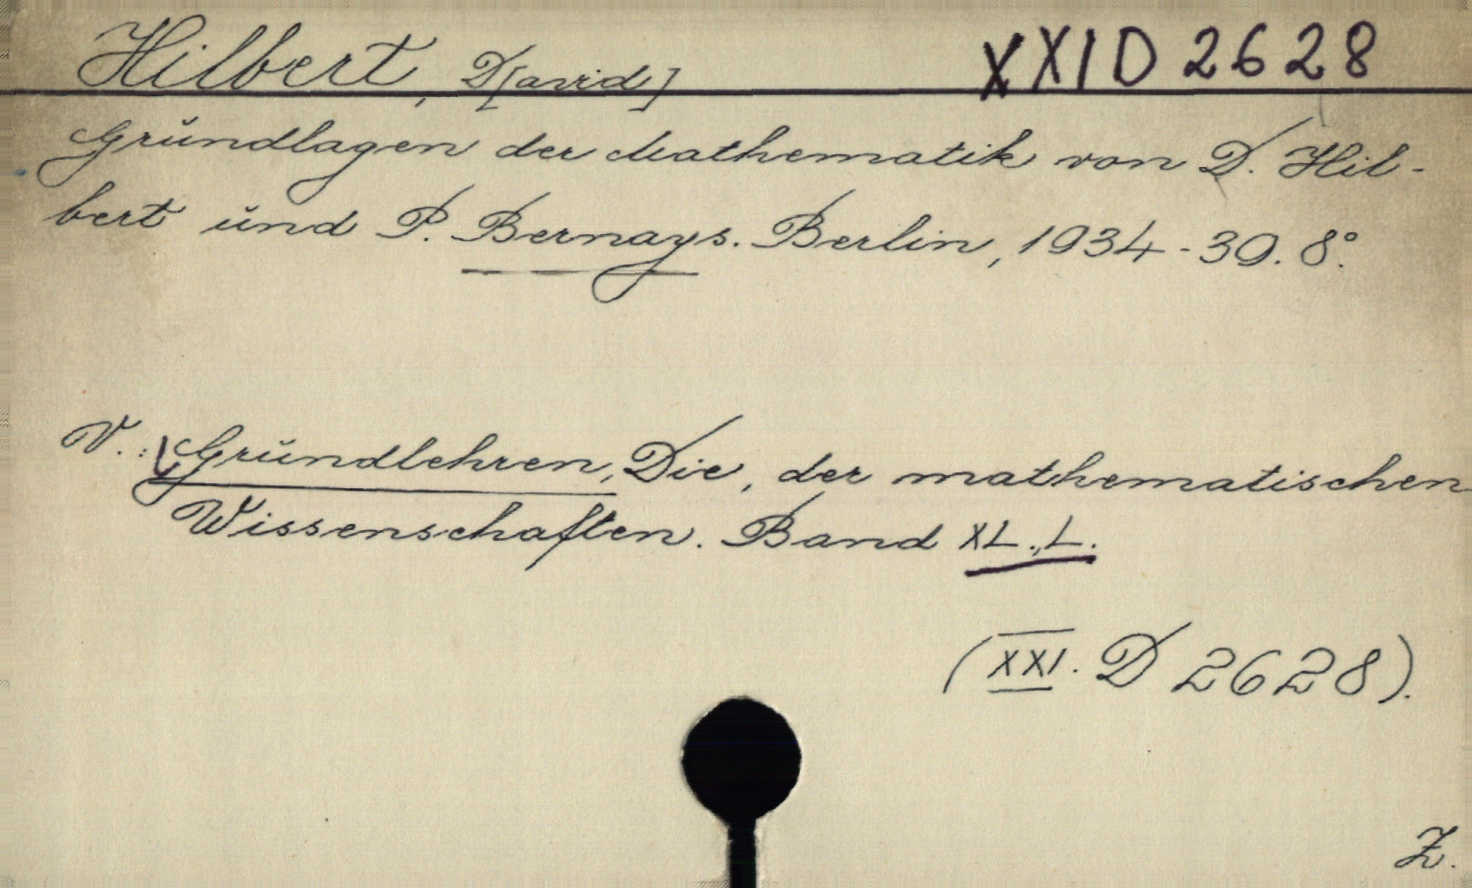 Hilbert, D[avid] XXI D 2628
Grundlagen der Mathematik von D. Hil-
bert und P. Bernays. Berlin, 1934-39. 8°.
V.: Grundlehren, Die, der mathematischen
Wissenschaften. Band XL., L.
(XXI. D 2628).
Z.